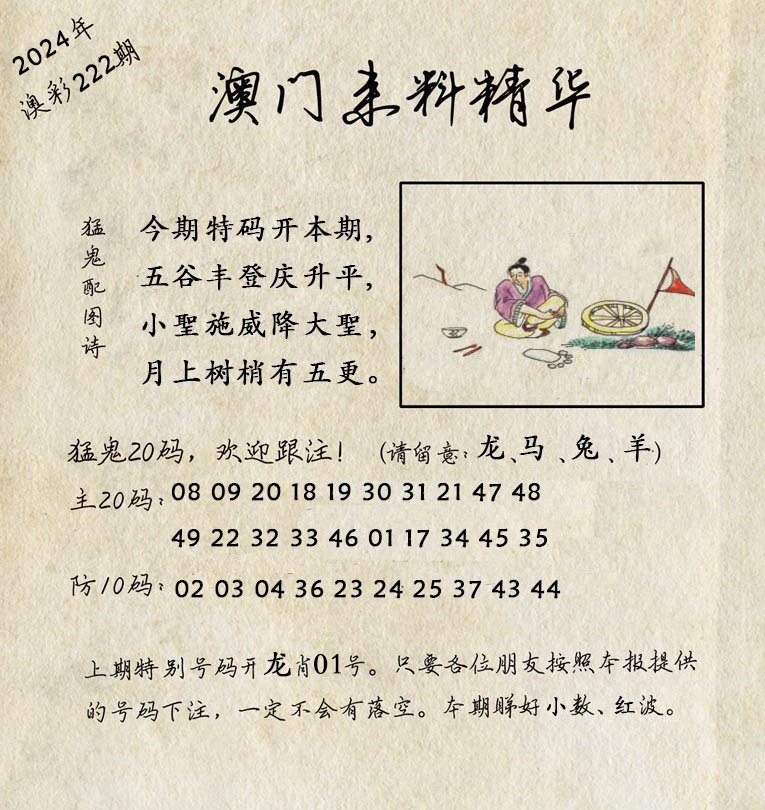 2024年
澳彩222期
澳门来料精华
猛鬼配图诗
今期特码开本期，
五谷丰登庆升平，
小聖施威降大聖，
月上树梢有五更。
猛鬼20码，欢迎跟注！（请留意：龙、马、兔、羊）
主20码：08 09 20 18 19 30 31 21 47 48
49 22 32 33 46 01 17 34 45 35
防10码：02 03 04 36 23 24 25 37 43 44
上期特别号码开龙肖01号。只要各位朋友按照本报提供
的号码下注，一定不会有落空。本期睇好小数、红波。